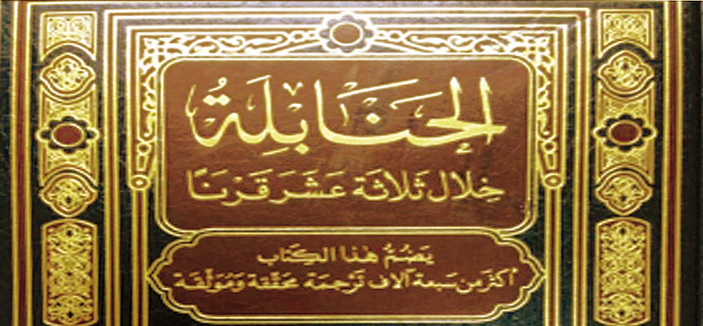 الحَنَابِلَةُ
خِلال ثَلاثَة عَشَر قَرْنًا
يَضُمُّ هٰذا الكِتَاب
أكثَر مِن سَبعة آلاف تَرْجَمَة مُحَقَّقة وَمُوَثَّقَة